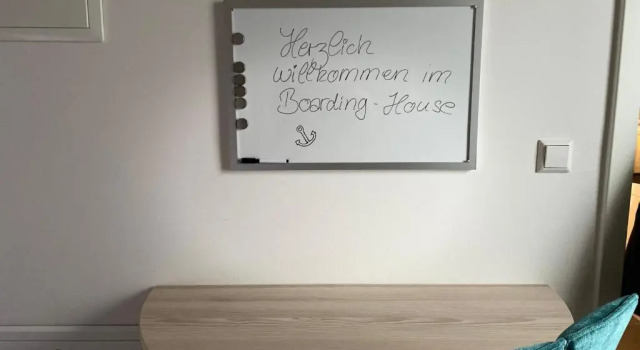 Herzlich
willkommen im
Boarding-House